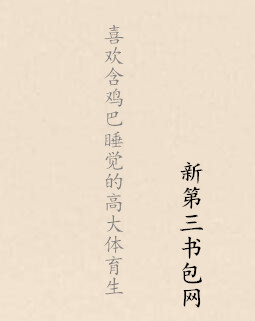 喜欢含鸡巴睡觉的高大体育生
新第三书包网